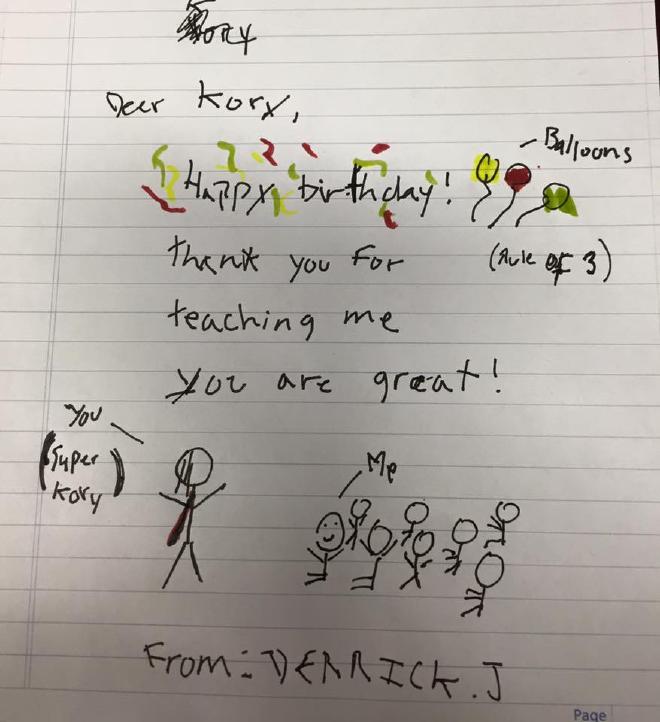 Kory
Dear Kory,
Happy birthday!
Balloons
thank you for
(Rule of 3)
teaching me
you are great!
You
(Super
Kory)
Me
From: DERRICK.J
Page